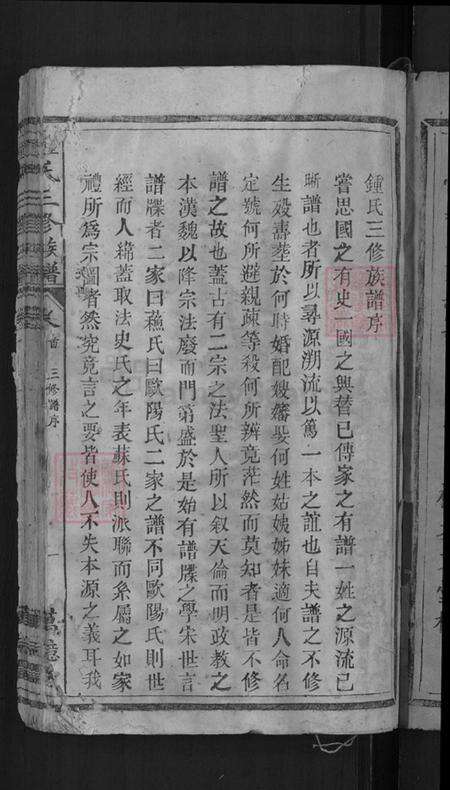 鍾氏三修族譜序
嘗思國之有史一國之興替已傳家之有譜一姓之源流已
晰譜也者所以尋源溯流以篤一本之誼也自夫譜之不修
生殁壽塟於何時婚配嫂嬸娶何姓姑姨姊妹適何人命名
定號何所避親疎等殺何所辨竟茫然而莫知者是皆不修
譜之故也蓋古有二宗之法聖人所以叙天倫而明政教之
本漢魏以降宗法廢而門第盛於是始有譜牒之學宋世言
譜牒者二家曰蘓氏曰歐陽氏二家之譜不同歐陽氏則世
經而人緯蓋取法史氏之年表蘇氏則派聯而系屬之如家
禮所爲宗圖者然究竟言之要皆使人不失本源之義耳我
氏三修族譜
首
三修譜序
一